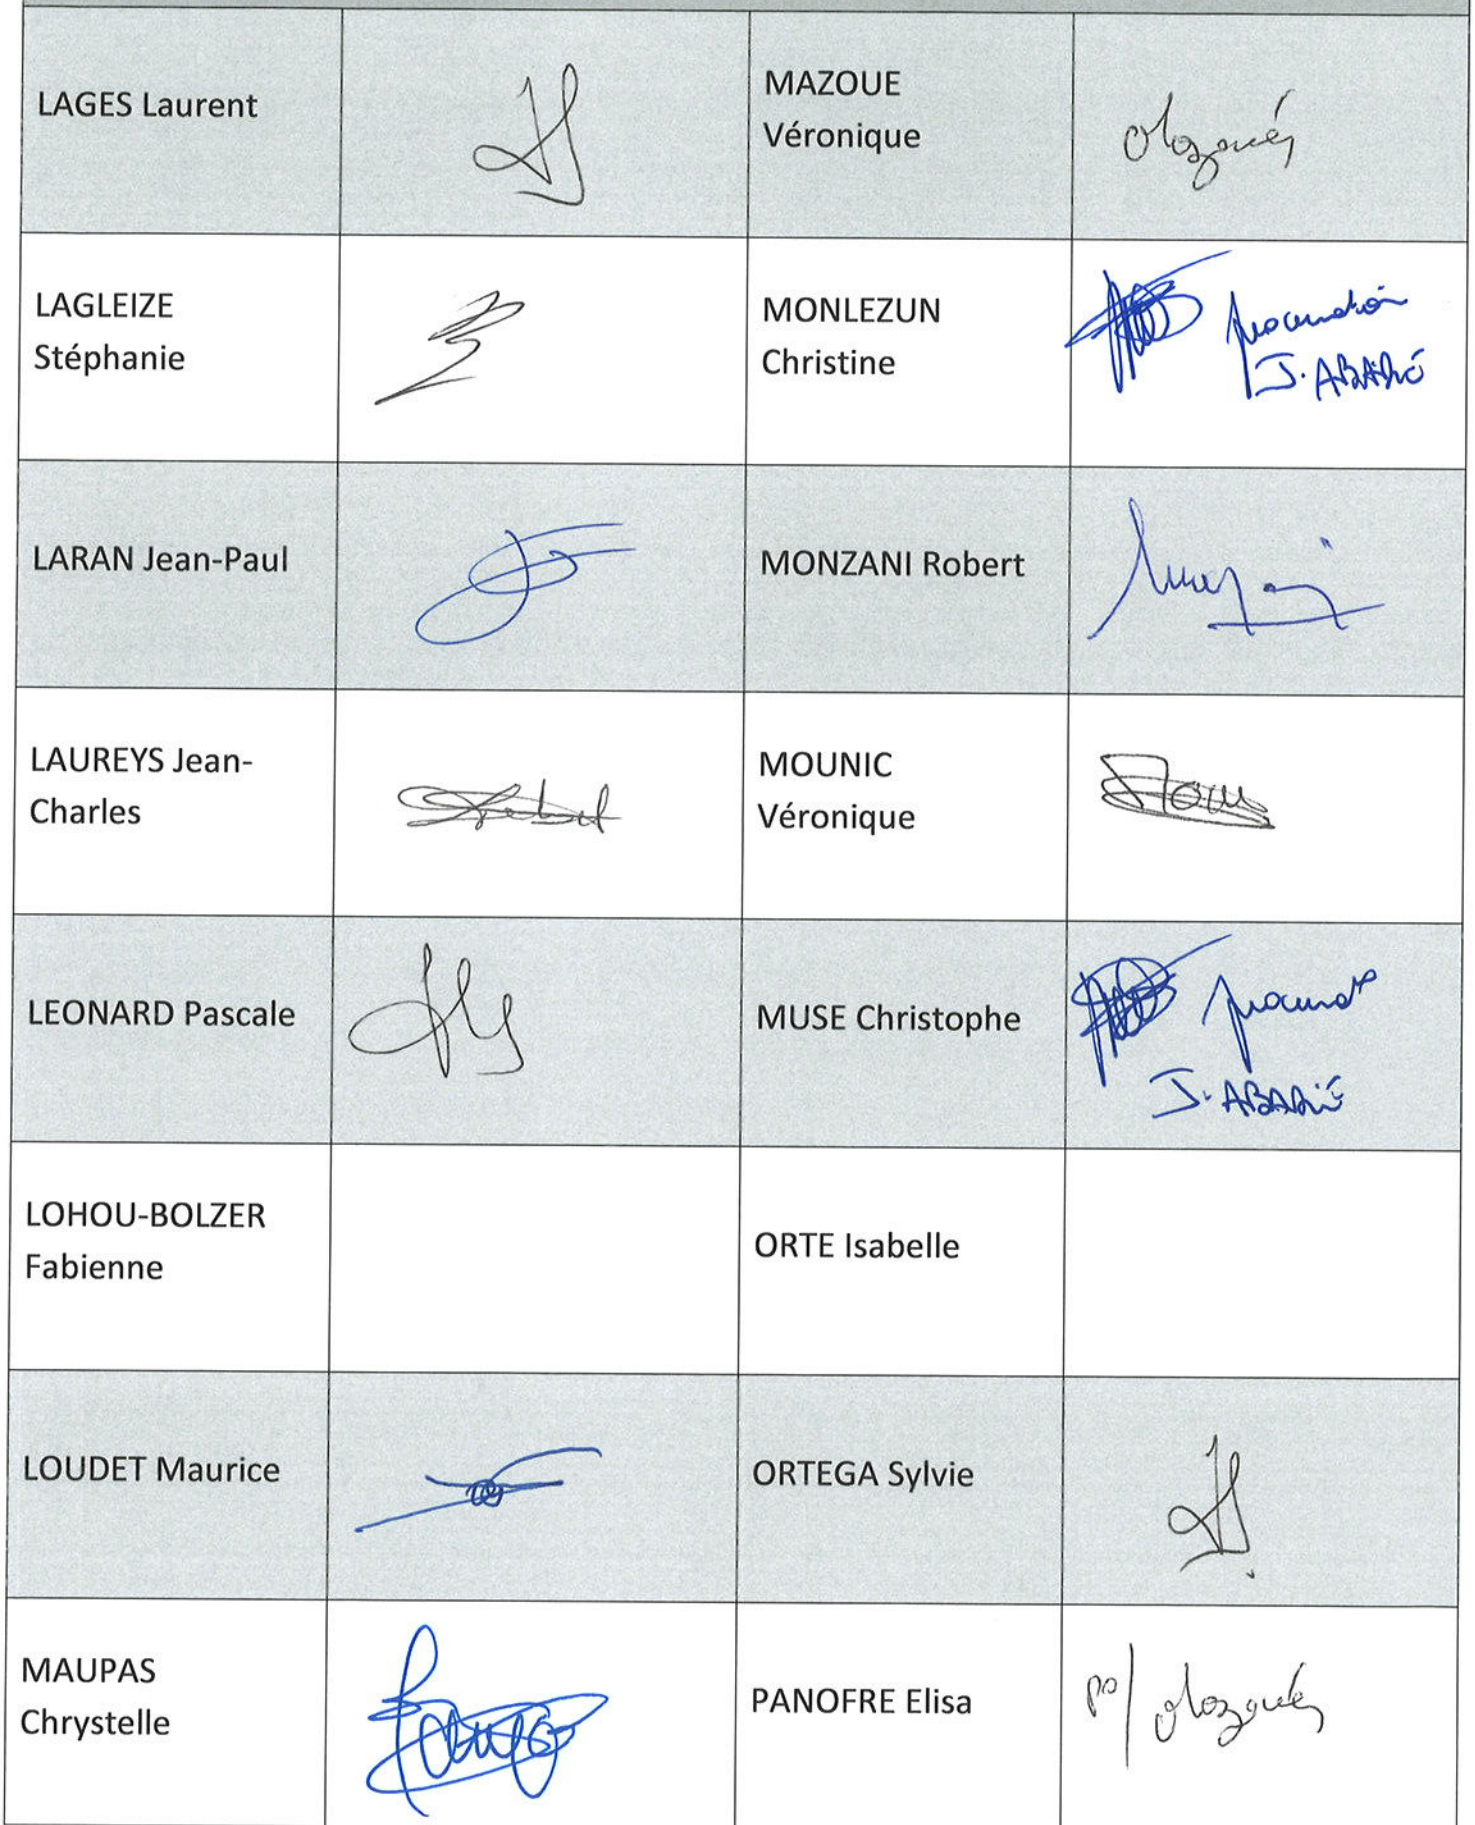 LAGES Laurent
MAZOUE
Véronique
LAGLEIZE
Stéphanie
MONLEZUN
Christine
procuration
J. ABADIE
LARAN Jean-Paul
MONZANI Robert
LAUREYS Jean-
Charles
MOUNIC
Véronique
LEONARD Pascale
MUSE Christophe
J. ABADIE
LOHOU-BOLZER
Fabienne
ORTE Isabelle
LOUDET Maurice
ORTEGA Sylvie
MAUPAS
Chrystelle
PANOFRE Elisa
po/